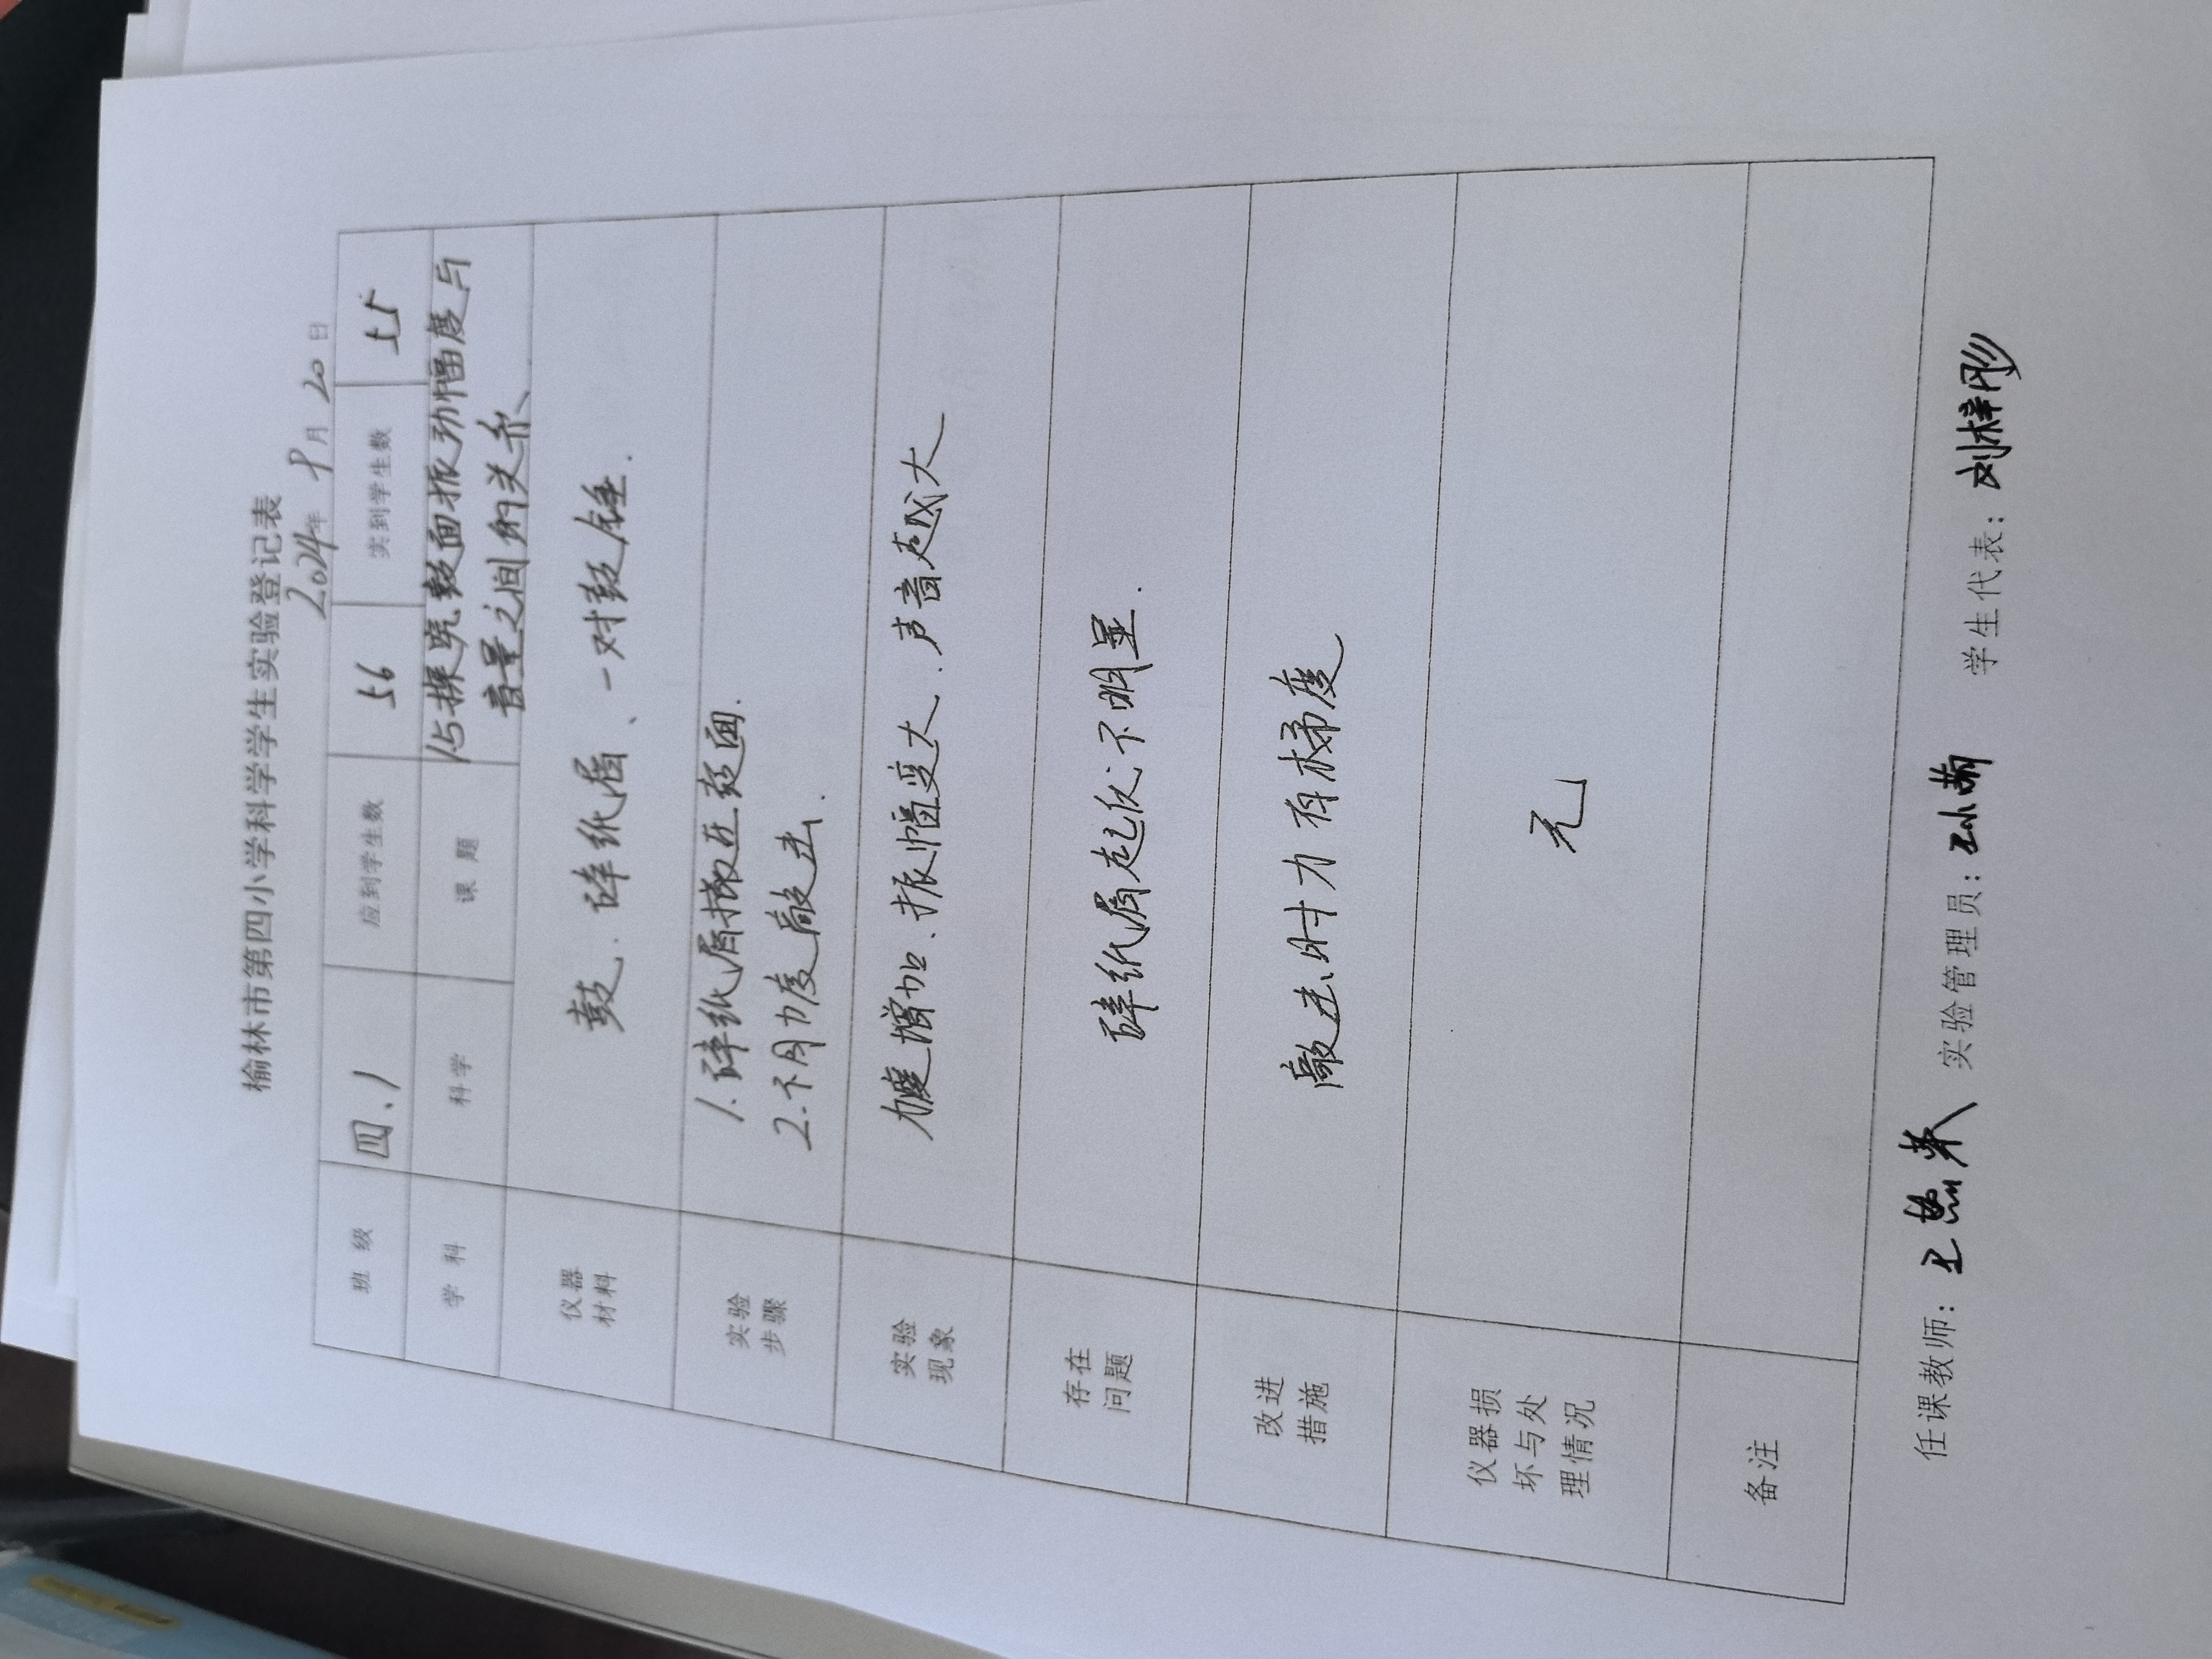 榆林市第四小学科学学生实验登记表
2024年 9月 20日
班 级 四、1 应到学生数 56 实到学生数 55
学 科 科学 课 题 15探究鼓面振动幅度与
音量之间的关系
仪器 材料 鼓、碎纸屑、一对鼓锤.
实验 步骤 1.碎纸屑撒在鼓面.
2.不同力度敲击.
实验 现象 力度增加、振幅变大、声音越大
存在 问题 碎纸屑起伏不明显.
改进 措施 敲击时力有梯度
仪器损 坏与处 理情况 无
备注
任课教师: 实验管理员: 学生代表: 刘梓彤